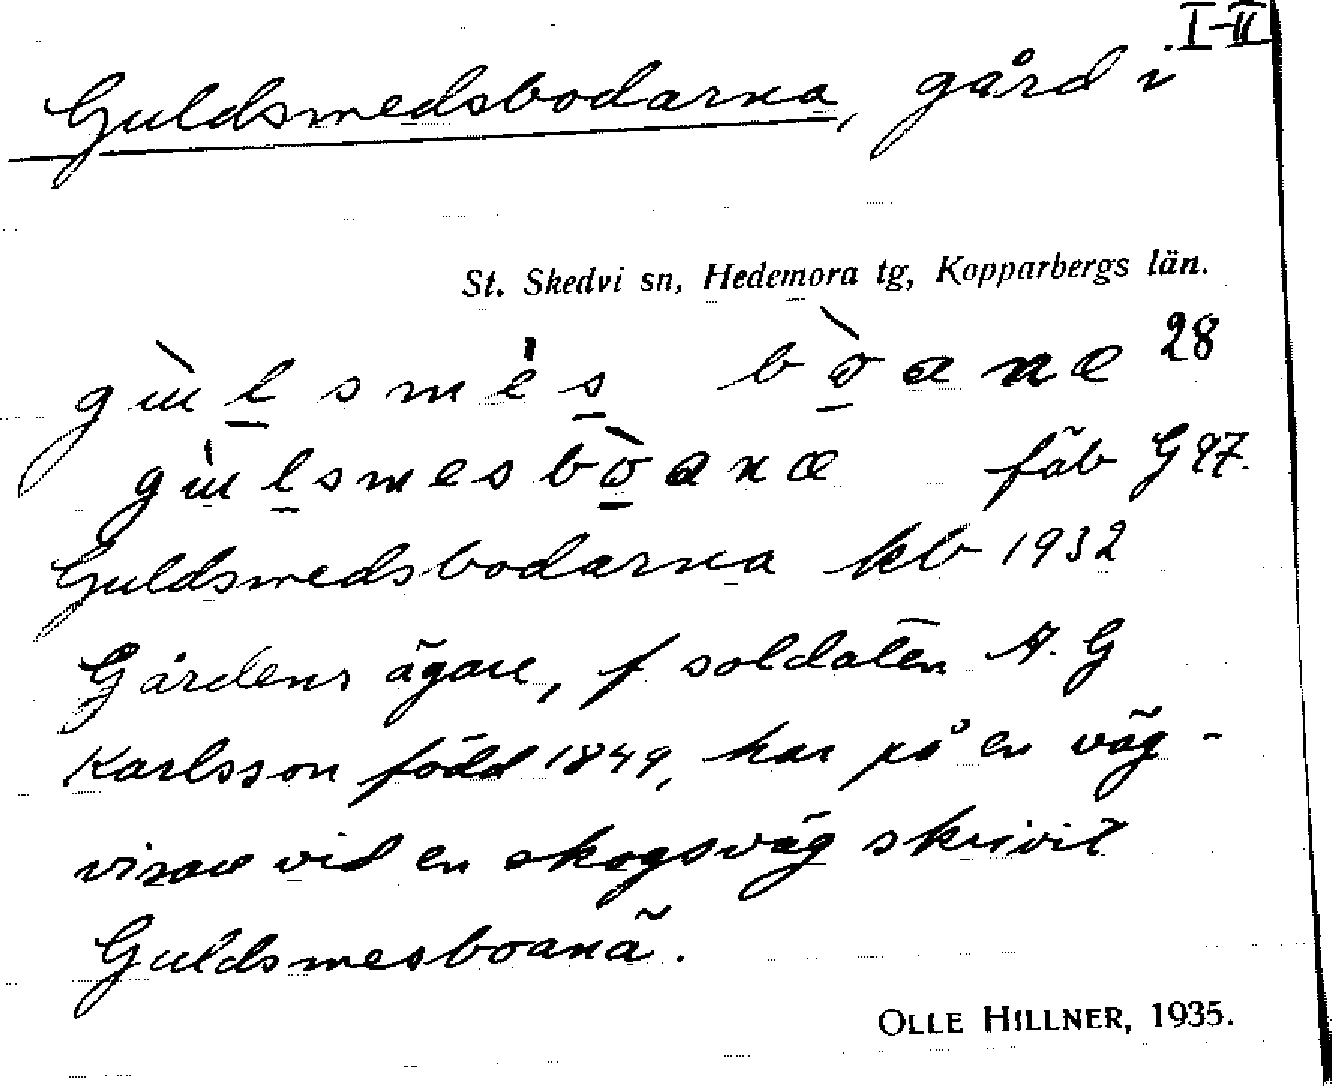 I-II
Guldsmedsbodarna, gård i
St. Skedvi sn, Hedemora tg, Kopparbergs län.
gùlsmés bòanæ 28
gùlsmesbòanæ fäb G 97.
Guldsmedsbodarna kb 1932
Gårdens ägare, f soldaten A. G
Karlsson född 1849, har på en väg-
visare vid en skogsväg skrivit
Guldsmesboanä.
OLLE HILLNER, 1935.